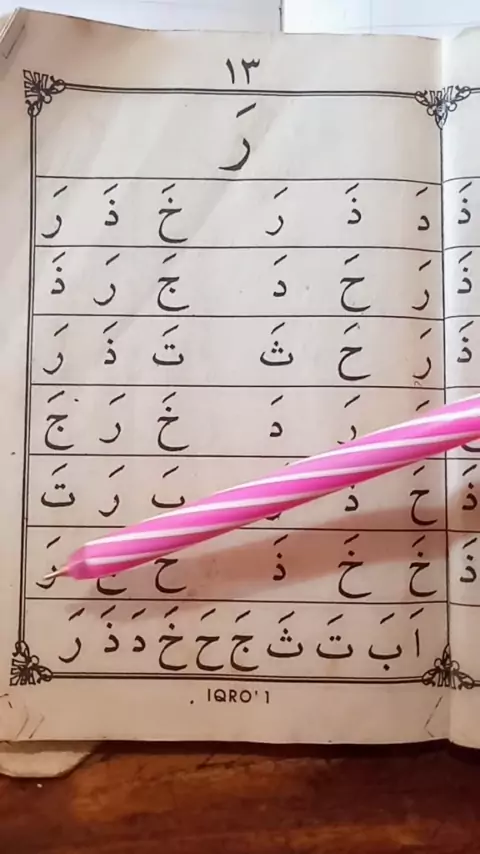 ١٣
رَ
دَ ذَ رَ خَ ذَ رَ
رَ حَ دَ جَ رَ ذَ
رَ حَ ثَ تَ ذَ رَ
رَ دَ خَ رَ جَ
حَ بَ رَ تَ
خَ خَ ذَ
اَ بَ تَ ثَ جَ حَ خَ دَ ذَ رَ
IQRO' 1